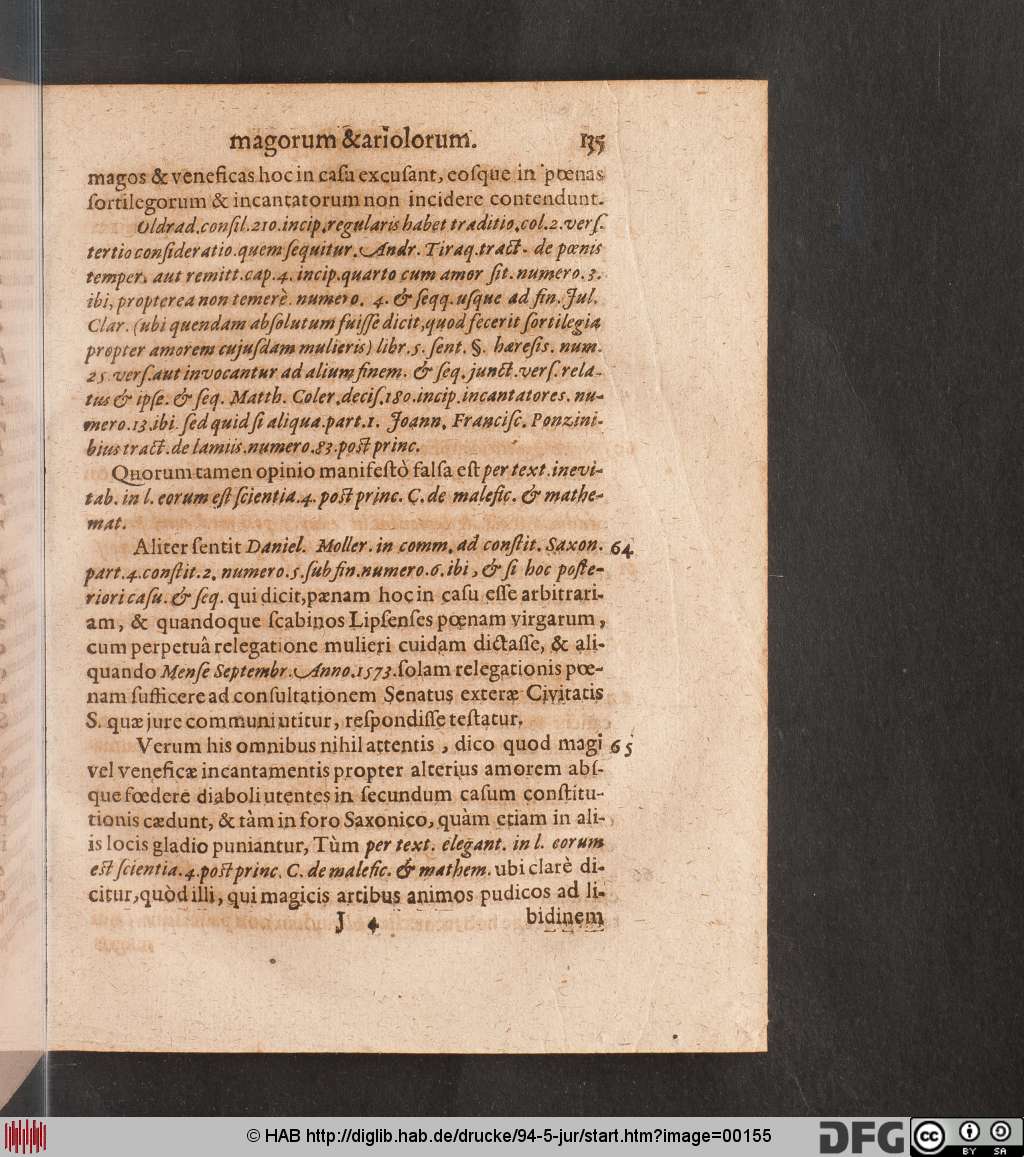 magorum & ariolorum. 135
magos & veneficas hoc in caſu excuſant, eoſque in pœnas
ſortilegorum & incantatorum non incidere contendunt.
Oldrad. conſil. 210. incip. regularis habet traditio. col. 2. verſ.
tertio conſideratio. quem ſequitur. Andr. Tiraq. tract. de pœnis
temper. aut remitt. cap. 4. incip. quarto cum amor ſit. numero. 3.
ibi, propterea non temerè. numero. 4. & ſeqq. uſque ad fin. Jul.
Clar. (ubi quendam abſolutum fuiſſe dicit, quod fecerit ſortilegia
propter amorem cujuſdam mulieris) libr. 5. ſent. §. hæreſis. num.
25. verſ. aut invocantur ad alium finem. & ſeq. junct. verſ. rela-
tus & ipſe. & ſeq. Matth. Coler. deciſ. 180. incip. incantatores. nu-
mero. 13. ibi. ſed quid ſi aliqua. part. 1. Joann. Franciſc. Ponzini-
bius tract. de lamiis. numero. 83. poſt princ.
Quorum tamen opinio manifeſtò falſa eſt per text. inevi-
tab. in l. eorum eſt ſcientia. 4. poſt princ. C. de malefic. & mathe-
mat.
Aliter ſentit Daniel. Moller. in comm. ad conſtit. Saxon. 64
part. 4. conſtit. 2. numero. 5. ſub fin. numero. 6. ibi, & ſi hoc poſte-
riori caſu. & ſeq. qui dicit, pænam hoc in caſu eſſe arbitrari-
am, & quandoque ſcabinos Lipſenſes pœnam virgarum,
cum perpetuâ relegatione mulieri cuidam dictaſſe, & ali-
quando Menſe Septembr. Anno. 1573. ſolam relegationis pœ-
nam ſufficere ad conſultationem Senatus exteræ Civitatis
S. quæ jure communi utitur, reſpondiſſe teſtatur.
Verum his omnibus nihil attentis, dico quod magi 65
vel veneficæ incantamentis propter alterius amorem abſ-
que fœdere diaboli utentes in ſecundum caſum conſtitu-
tionis cædunt, & tàm in foro Saxonico, quàm etiam in ali-
is locis gladio puniantur, Tùm per text. elegant. in l. eorum
eſt ſcientia. 4. poſt princ. C. de malefic. & mathem. ubi clarè di-
citur, quòd illi, qui magicis artibus animos pudicos ad li-
J 4 bidinem
© HAB http://diglib.hab.de/drucke/94-5-jur/start.htm?image=00155
DFG cc BY SA